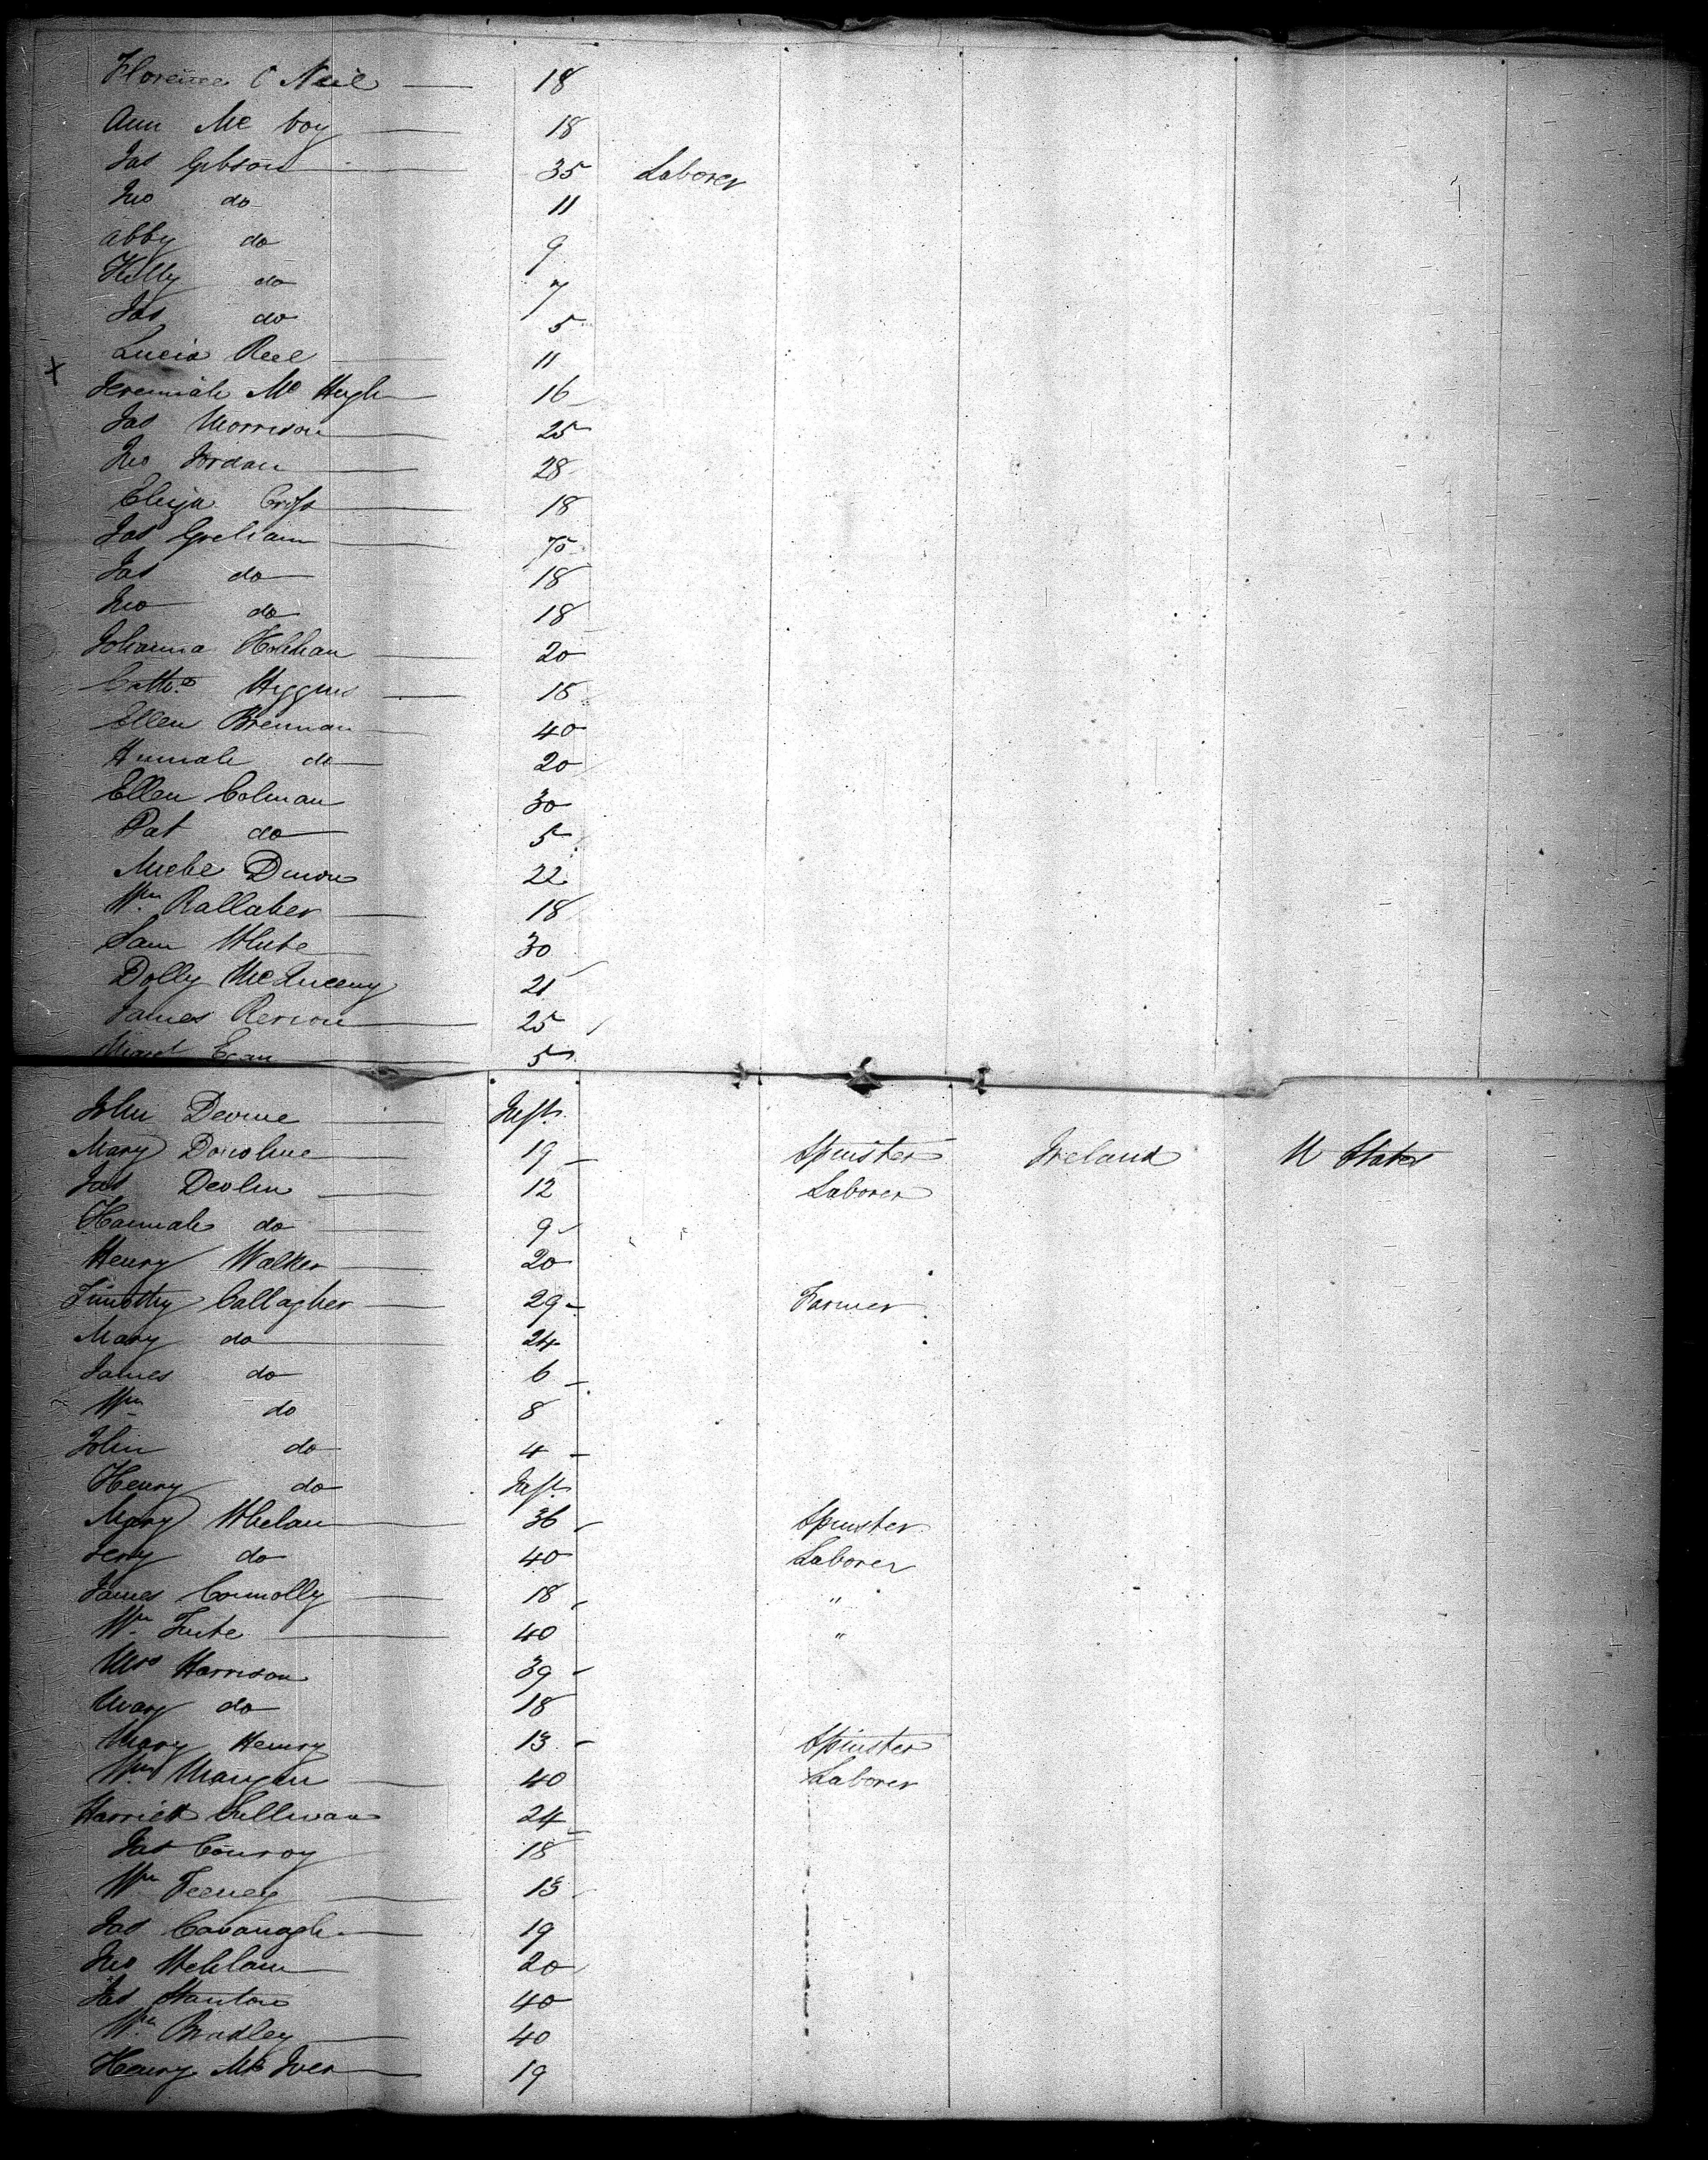 Florence O Neil 18
Ann Mc Coy 18
Jas Gibson 35 Laborer
Jno do 11
Abby do 9
Kitty do 7
Jas do 5
x Lucia Reel 11
Jeremiah Mc Hugh 16
Jas Morrison 25
Jno Jordan 28
Eliza 18
Jas Greham 75
Jas do 18
Jno do 18
Johanna 20
Cathe Higgins 15
Ellen Brennan 40
Hannah do 20
Ellen Colman 30
Pat do 5
Michl 22
Wm Rallaher 18
Sam White 30
Dolly 21
James 25
Margt Egan 5
John Devine Inft
Mary Donohue 19 Spinster Ireland U States
Jas Devlin 12 Laborer
Hannah do 9
Henry Walker 20
Timothy Callagher 29 Farmer
Mary do 24
James do 6
Wm do 8
John do 4
Henry do Inft
Mary Whelan 36 Spinster
Jerry do 40 Laborer
James Connolly 18 "
Wm Tuite 40 "
Mrs Harrison 39
Mary do 18
Mary Henry 13 Spinster
Wm Mangan 40 Laborer
Harriett Sullivan 24
Jas Conroy 18
Wm Feeney 13
Jas Cavanagh 19
Jno Wehlam 20
Jas Stanton 40
Wm Bradley 40
Henry Mc Iver 19